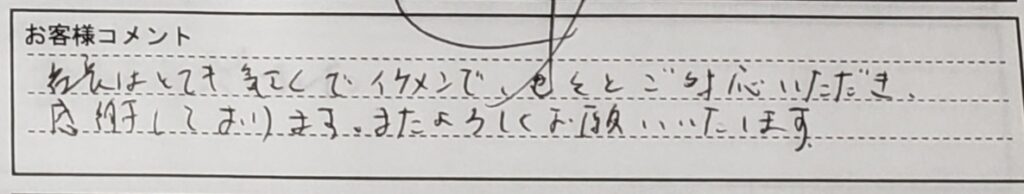 お客様コメント
はとても でイケメンで、 ご対応いただき、
感謝しております。またよろしくお願いいたします。